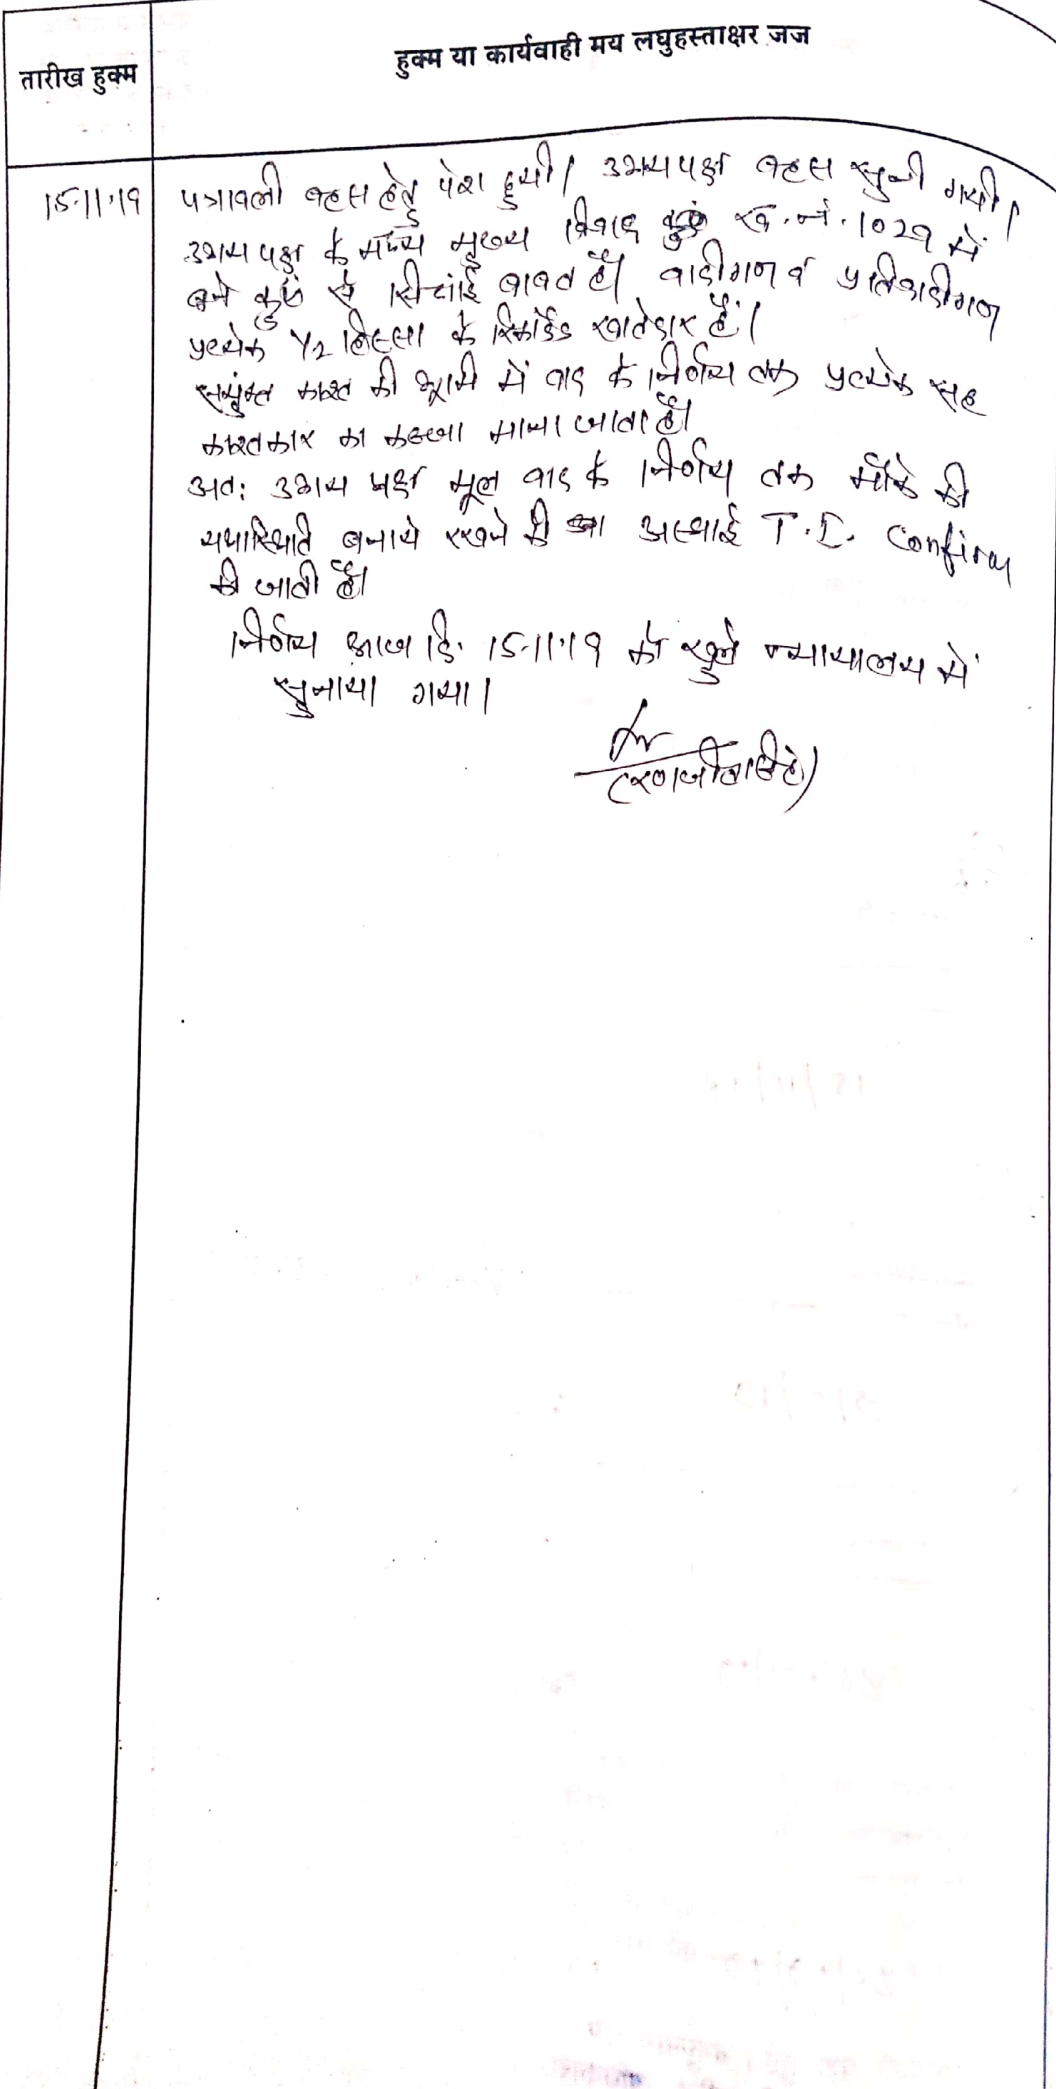 तारीख हुक्म
हुक्म या कार्यवाही मय लघुहस्ताक्षर जज
15.11.19
पत्रावली बहस हेतु पेश हुयी। उभयपक्ष बहस सुनी गयी।
उभय पक्ष के मध्य मुख्य विवाद ख.नं. 1029 में
बने कुएं से सिंचाई बाबत है। वादीगण व प्रतिवादीगण
प्रत्येक 1/2 हिस्सा के रिकॉर्डेड खातेदार हैं।
सयुंक्त काश्त की भूमि में वाद के निर्णय तक प्रत्येक सह
काश्तकार का कब्जा माना जाता है।
अतः उभय पक्ष मूल वाद के निर्णय तक मौके की
यथास्थिति बनाये रखने की अस्थाई T.I. Confirm
की जाती है।
निर्णय आज दि. 15.11.19 को खुले न्यायालय में
सुनाया गया।
(रणजीतसिंह)